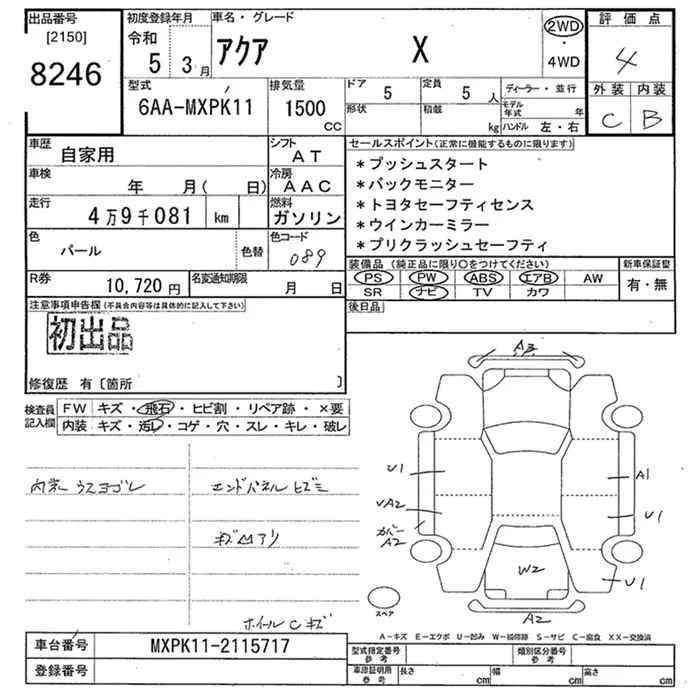 出品番号 [2150] 8246
初度登録年月 令和 5年 3月
車名・グレード アクア X
2WD・4WD
評価点 4
外装 C 内装 B
型式 6AA-MXPK11
排気量 1500 CC
ドア 5 定員 5人
形状 積載 kg
ディーラー・並行
モデル年式 年
ハンドル 左・右
車歴 自家用
シフト AT
車検 年 月( 日)
冷房 AAC
走行 4万9千081 km
燃料 ガソリン
色 パール 色替
色コード 089
R券 10,720円
名変通知期限 月 日
セールスポイント(正常に機能するものに限ります)
*プッシュスタート
*バックモニター
*トヨタセーフティセンス
*ウインカーミラー
*プリクラッシュセーフティ
装備品(純正品に限り○をつけてください)
PS PW ABS エアB AW
SR ナビ TV カワ
新車保証書 有・無
後日品
注意事項申告欄(不具合内容等は具体的に記入して下さい)
初出品
修復歴 有〔箇所 〕
検査員記入欄
FW キズ・飛石・ヒビ割・リペア跡・×要
内装 キズ・汚レ・コゲ・穴・スレ・キレ・破レ
内装 ウスヨゴレ
エンドパネル ヒズミ
キズ凹アリ
ホイールCキズ
A3
U1
A1
UA2
U1
カバー
A2
W2
U1
A2
スペア
A-キズ E-エクボ U-凹み W-補修跡 S-サビ C-腐食 XX-交換済
車台番号 MXPK11-2115717
登録番号
型式指定番号 参考
類別区分番号 参考
車庫証明用 参考
長さ cm 幅 cm 高さ cm